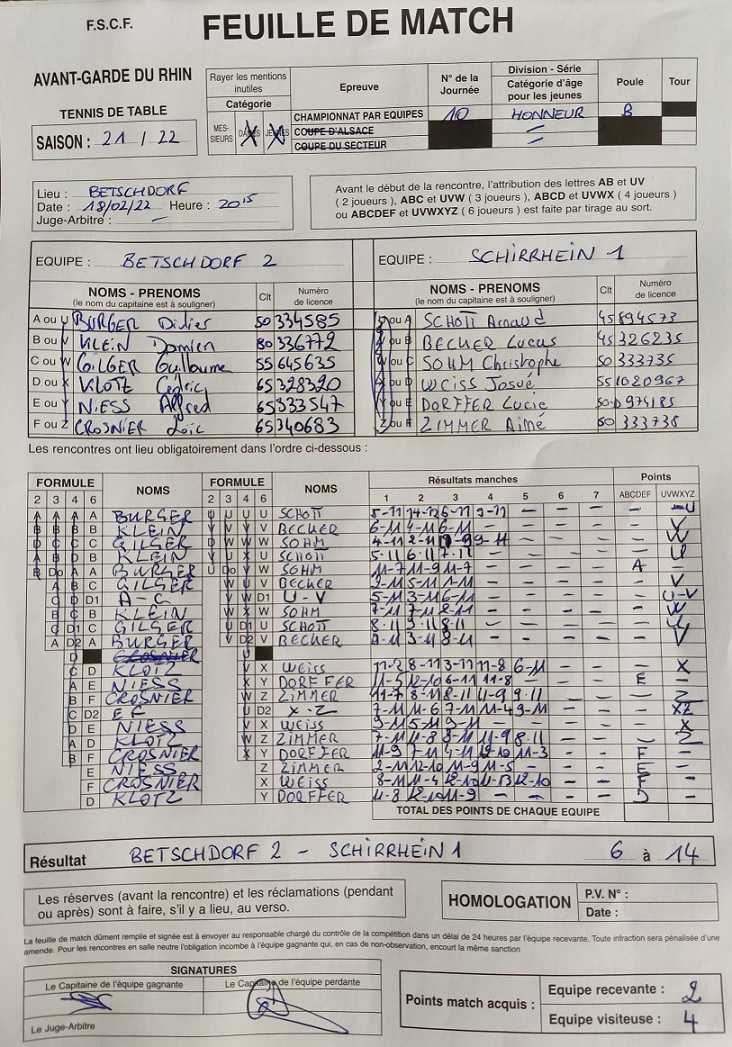 F.S.C.F.
FEUILLE DE MATCH
AVANT-GARDE DU RHIN
TENNIS DE TABLE
SAISON : 21 / 22
Rayer les mentions inutiles
Catégorie
MES-SIEURS DAMES JEUNES
Epreuve
CHAMPIONNAT PAR EQUIPES
COUPE D'ALSACE
COUPE DU SECTEUR
N° de la Journée
10
Division - Série
Catégorie d'âge pour les jeunes
HONNEUR
Poule
B
Tour
Lieu : BETSCHDORF
Date : 18/02/22 Heure : 20 15
Juge-Arbitre : —
Avant le début de la rencontre, l'attribution des lettres AB et UV
( 2 joueurs ), ABC et UVW ( 3 joueurs ), ABCD et UVWX ( 4 joueurs )
ou ABCDEF et UVWXYZ ( 6 joueurs ) est faite par tirage au sort.
EQUIPE : BETSCHDORF 2
NOMS - PRENOMS Clt Numéro de licence
(le nom du capitaine est à souligner)
A ou U BURGER Didier 50 334585
B ou V KLEIN Damien 80 336772
C ou W GILGER Guillaume 55 645635
D ou X KLOTZ Cédric 65 328320
E ou Y NIESS Alfred 65 333547
F ou Z CROSNIER Loïc 65 340683
EQUIPE : SCHIRRHEIN 1
NOMS - PRENOMS Clt Numéro de licence
(le nom du capitaine est à souligner)
U ou A SCHOTT Arnaud 45 894573
V ou B BECHER Lucas 45 326235
W ou C SOHM Christophe 50 333735
X ou D WEISS Josué 55 1020967
Y ou E DORFFER Lucie 50 974185
Z ou F ZIMMER Aimé 50 333738
Les rencontres ont lieu obligatoirement dans l'ordre ci-dessous :
FORMULE NOMS FORMULE NOMS Résultats manches Points
2 3 4 6 2 3 4 6 1 2 3 4 5 6 7 ABCDEF UVWXYZ
A BURGER U SCHOTT 5-11 14-12 6-11 9-11 — — — — U
B KLEIN V BECHER 6-11 4-11 6-11 V
C GILGER W SOHM 4-11 2-11 9-11 — — — — W
B KLEIN U SCHOTT 5-11 6-11 7-12 — — — — U
A BURGER W SOHM 11-7 11-9 11-7 — — — — A —
C GILGER V BECHER 2-11 5-11 1-11 — — — — — V
D1 A-C D1 U-V 5-11 3-11 6-11 — — — — — U-V
B KLEIN W SOHM 7-11 7-11 8-11 — — — — — W
C GILGER U SCHOTT 8-11 9-11 8-11 — — — — — U
A BURGER V BECHER 9-11 3-11 8-11 — — — — — V
D KLOTZ X WEISS 11-2 8-11 3-11 11-8 6-11 — — — X
E NIESS Y DORFFER 11-5 12-10 6-11 11-8 — — — E —
F CROSNIER Z ZIMMER 11-7 8-11 8-11 11-9 9-11 — — — Z
D2 E F D2 X-Z 7-11 11-6 7-11 11-4 9-11 — — — XZ
E NIESS X WEISS 9-11 5-11 9-11 — — — — — X
D KLOTZ Z ZIMMER 7-11 11-8 8-11 11-9 8-11 — — — Z
F CROSNIER Y DORFFER 11-9 7-11 4-11 12-10 11-3 — — F —
E NIESS Z ZIMMER 2-11 12-10 11-9 11-5 — — — E —
F CROSNIER X WEISS 8-11 11-4 12-10 11-13 12-10 — — F —
D KLOTZ Y DORFFER 11-8 12-10 11-9 — — — — D —
TOTAL DES POINTS DE CHAQUE EQUIPE
Résultat BETSCHDORF 2 - SCHIRRHEIN 1 6 à 14
Les réserves (avant la rencontre) et les réclamations (pendant
ou après) sont à faire, s'il y a lieu, au verso.
HOMOLOGATION
P.V. N° :
Date :
La feuille de match dûment remplie et signée est à envoyer au responsable chargé du contrôle de la compétition dans un délai de 24 heures par l'équipe recevante. Toute infraction sera pénalisée d'une
amende. Pour les rencontres en salle neutre l'obligation incombe à l'équipe gagnante qui, en cas de non-observation, encourt la même sanction
SIGNATURES
Le Capitaine de l'équipe gagnante Le Capitaine de l'équipe perdante
Le Juge-Arbitre
Points match acquis :
Equipe recevante : 2
Equipe visiteuse : 4